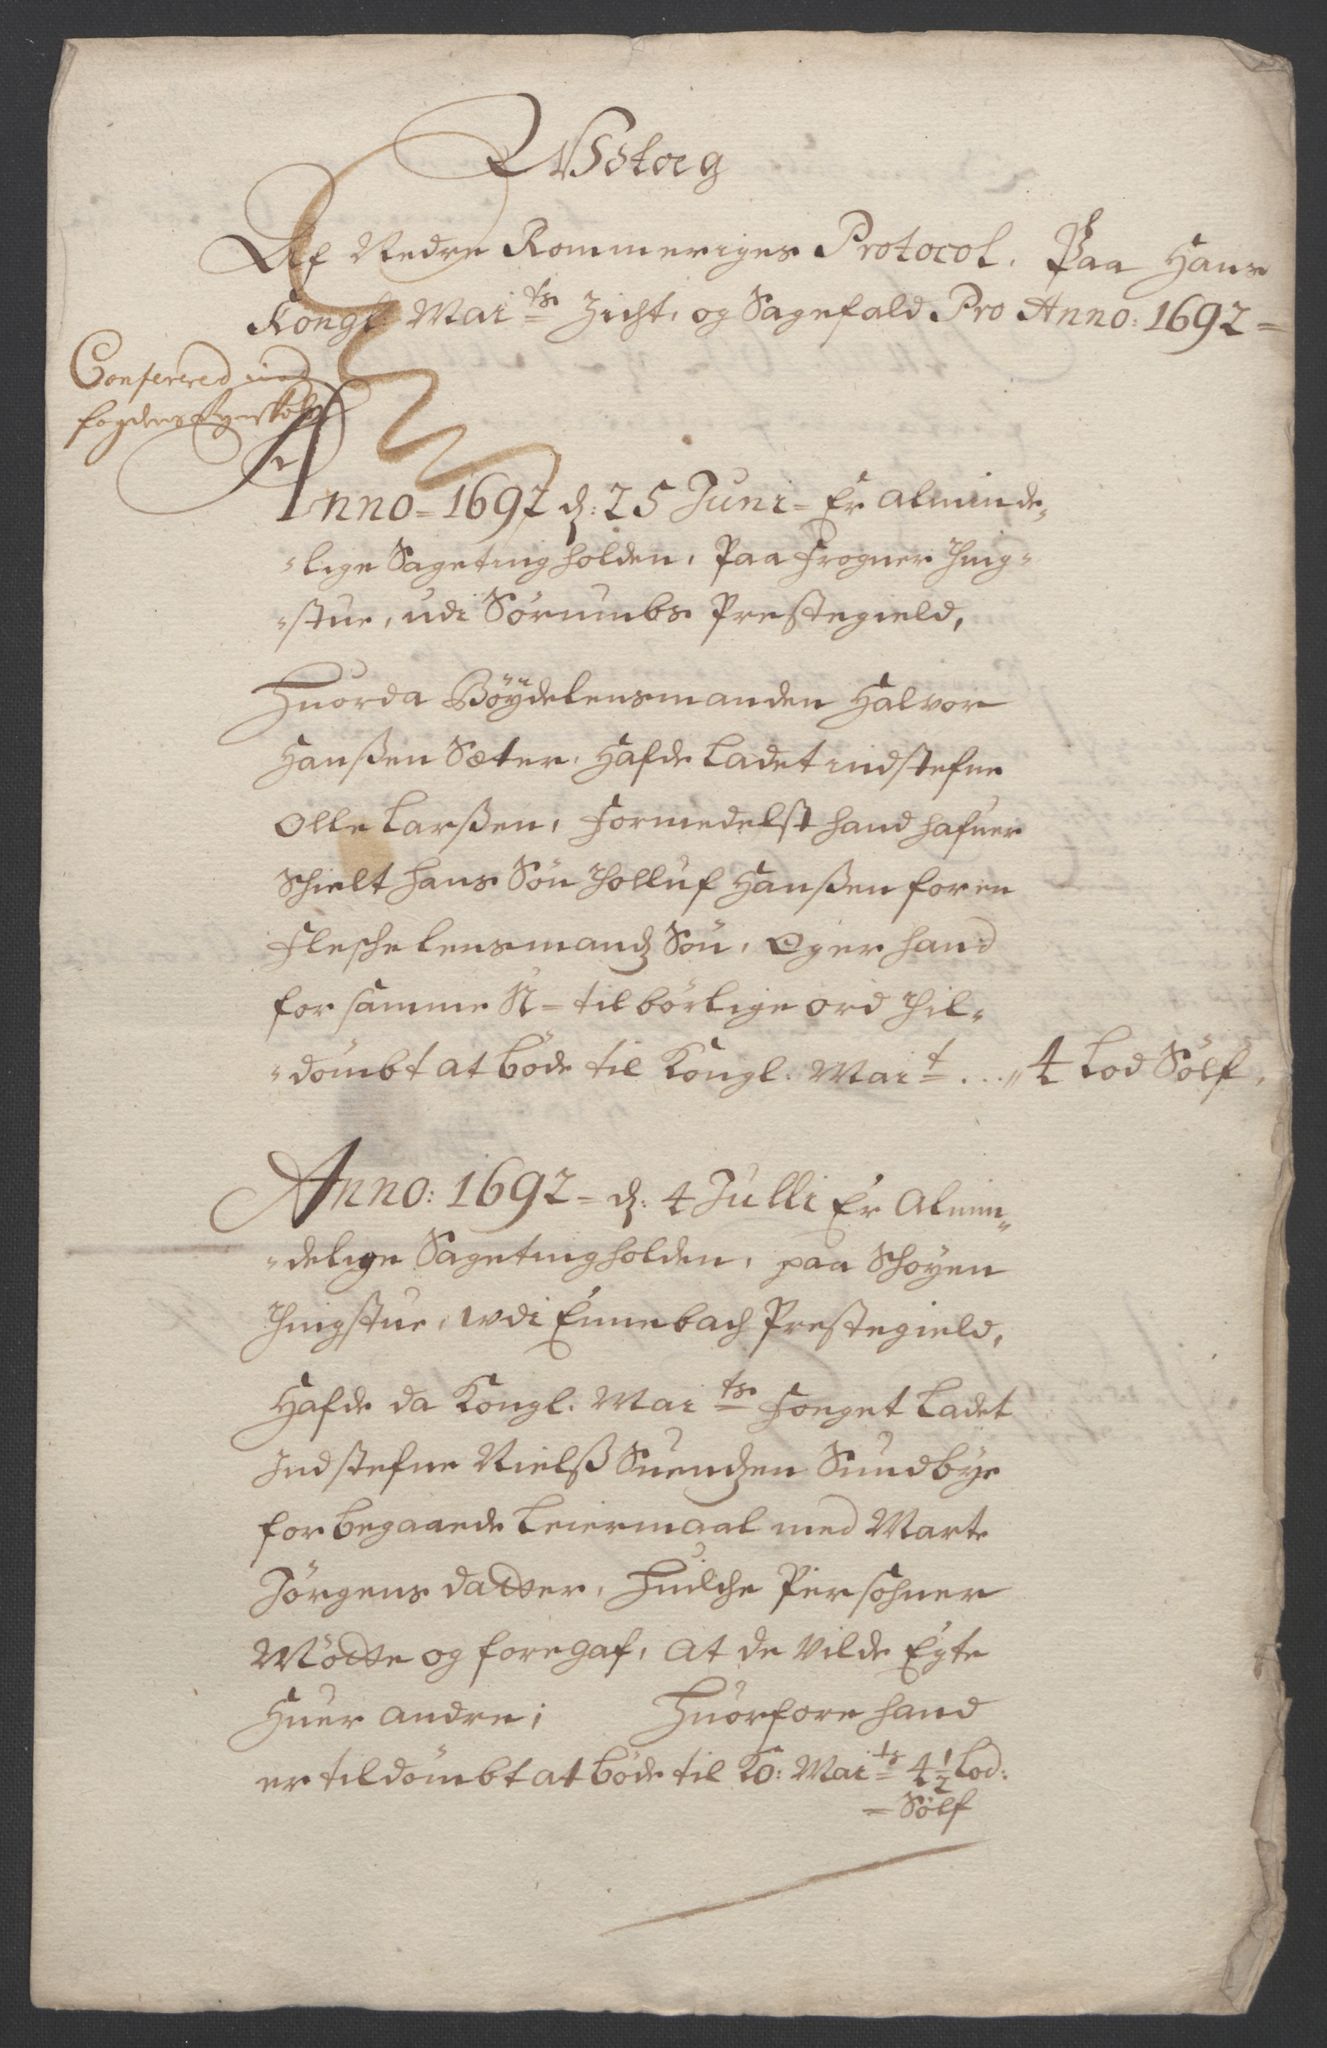 Udtog
Af Nedre Rommeriges Protocol. Paa Hans
Kongl. Mai ts Zicht, og Sagefald Pro Anno: 1692 =
Confererid med
fogdens
Anno = 1692 d: 25 Juni = Er alminde„
„lige Sageting holden, Paa Frogner Ting„
„stue, udi Sørumbs Prestegield,
Huorda Böÿdelensmanden Halvor
Hanßen Sæter, Hafde Ladet indstefne
Olle Larßen, Formedelst hand hafuer
Schielt hans Sön Tolluf Hanßen for en
Flesche lensmandz Sön, Og er hand
for samme U=tilbörlige ord til„
„dömbt at böde til Kongl. Mai t ... „ 4 Lod Sölf,
Anno: 1692 = d: 4 Julli Er Almin„
„delige Sageting holden, paa Schoyen
Tingstue, wdi Ennebach Prestegield,
Hafde da Kongl. Mai ts Foeget Ladet
Indstefne Nielß Suendzen Sundbye
for begaaende Leiermaal med Marte
Jörgens datter, Huilche Persohner
Mötte og foregaf, at de vilde Egte
Huer andre; Huorfore hand
er tildömbt at böde til Ko: Mai ts 4 1/2 Lod:
= Sölf